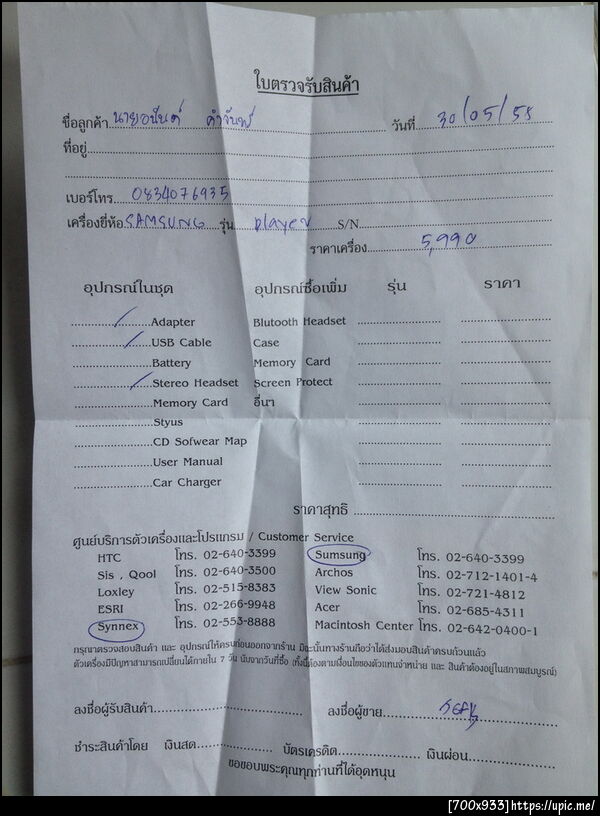 ใบตรวจรับสินค้า
ชื่อลูกค้า นายอนันต์ คำจันทร์ วันที่ 30/05/55
ที่อยู่
เบอร์โทร 0834076935
เครื่องยี่ห้อ SAMSUNG รุ่น player S/N
ราคาเครื่อง 5,990
อุปกรณ์ในชุด อุปกรณ์ซื้อเพิ่ม รุ่น ราคา
Adapter Blutooth Headset
USB Cable Case
Battery Memory Card
Stereo Headset Screen Protect
Memory Card อื่นๆ
Styus
CD Sofwear Map
User Manual
Car Charger
ราคาสุทธิ
ศูนย์บริการตัวเครื่องและโปรแกรม / Customer Service
HTC โทร. 02-640-3399 Sumsung โทร. 02-640-3399
Sis , Qool โทร. 02-640-3500 Archos โทร. 02-712-1401-4
Loxley โทร. 02-515-8383 View Sonic โทร. 02-721-4812
ESRI โทร. 02-266-9948 Acer โทร. 02-685-4311
Synnex โทร. 02-553-8888 Macintosh Center โทร. 02-642-0400-1
กรุณาตรวจสอบสินค้า และ อุปกรณ์ให้ครบก่อนออกจากร้าน มิฉะนั้นทางร้านถือว่าได้ส่งมอบสินค้าครบถ้วนแล้ว
ตัวเครื่องมีปัญหาสามารถเปลี่ยนได้ภายใน 7 วัน นับจากวันที่ซื้อ (ทั้งนี้ต้องตามเงื่อนไขของตัวแทนจำหน่าย และ สินค้าต้องอยู่ในสภาพสมบูรณ์)
ลงชื่อผู้รับสินค้า ลงชื่อผู้ขาย
ชำระสินค้าโดย เงินสด บัตรเครดิต เงินผ่อน
ขอขอบพระคุณทุกท่านที่ได้อุดหนุน
[700x933]https://upic.me/